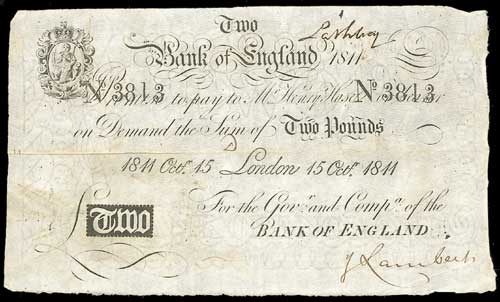 Two
Bank of England 1811
Nº 3813 Nº 3813
to pay to Mr. Henry Hase or Bearer
on Demand the Sum of Two Pounds
1811 Octr. 15 London 15 Octr. 1811
For the Govr. and Compa. of the
£ Two
BANK OF ENGLAND.
J Lambert